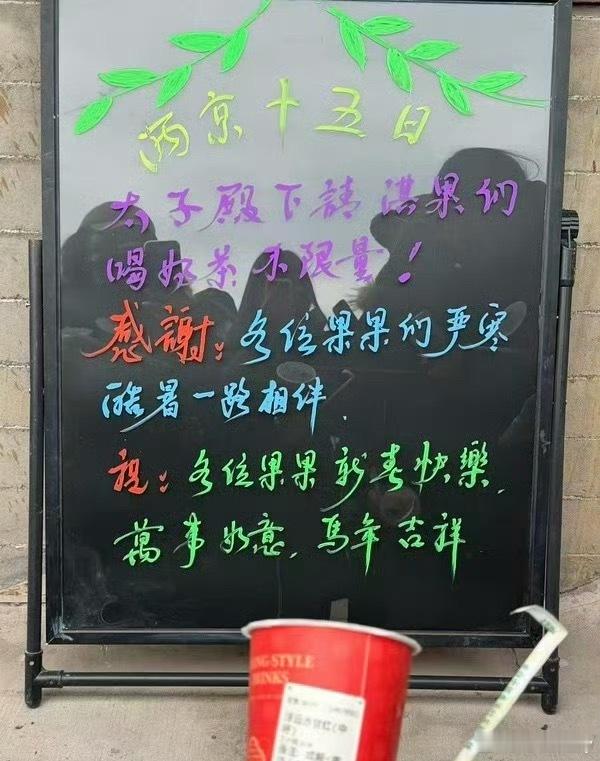 两京十五日
太子殿下請淇果们
喝奶茶不限量！
感謝：各位果果们严寒
酷暑一路相伴．
祝：各位果果新春快樂，
萬事如意，馬年吉祥
NG-STYLE
RINKS